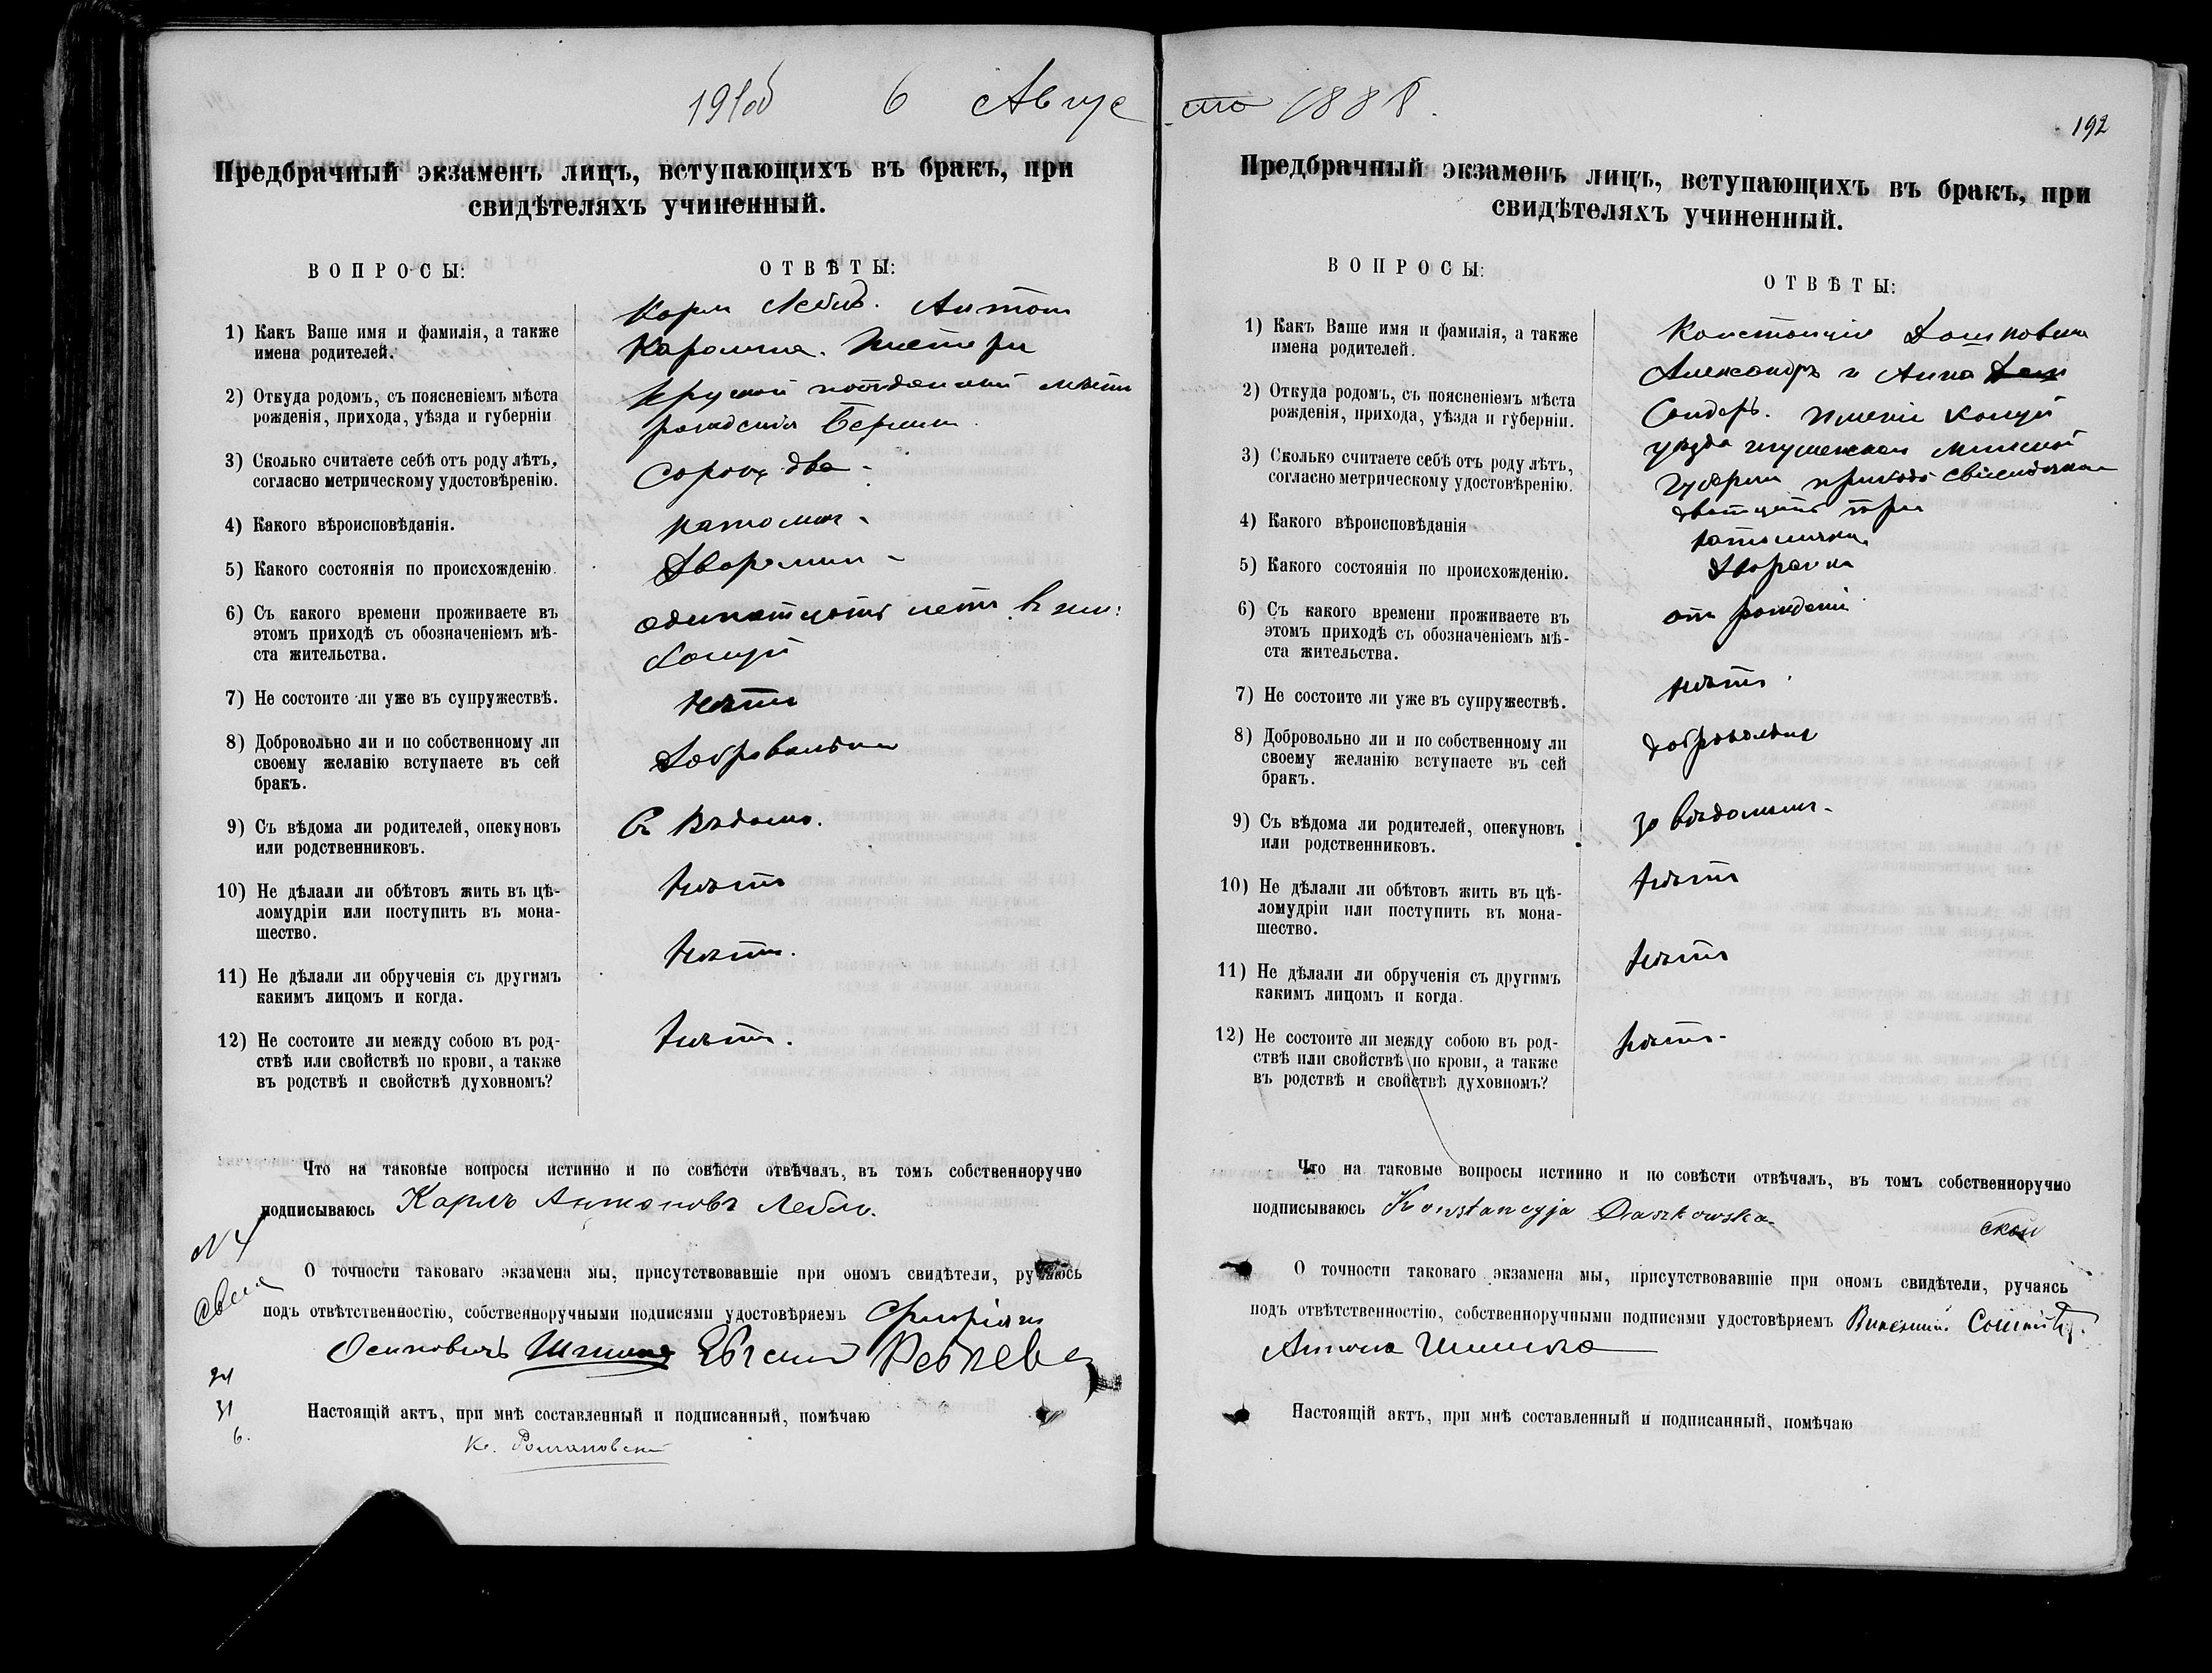 191об 6 Авгус
Предбрачный экзаменъ лицъ, вступающихъ въ бракъ, при
свидѣтеляхъ учиненный.
ВОПРОСЫ:
ОТВѢТЫ:
1) Какъ Ваше имя и фамилія, а также
имена родителей.
Карл Антон
Каролина.
2) Откуда родомъ, съ поясненіемъ мѣста
рожденія, прихода, уѣзда и губерніи
Берлин
3) Сколько считаете себѣ отъ роду лѣтъ,
согласно метрическому удостовѣренію.
сорок два
4) Какого вѣроисповѣданія.
католик
5) Какого состоянія по происхожденію.
Дворянин
6) Съ какого времени проживаете въ
этомъ приходѣ съ обозначеніемъ мѣ-
ста жительства.
одинатцать летъ в
7) Не состоите ли уже въ супружествѣ.
нѣтъ
8) Добровольно ли и по собственному ли
своему желанію вступаете въ сей
бракъ.
Добровольно
9) Съ вѣдома ли родителей, опекуновъ
или родственниковъ.
С Вѣдома.
10) Не дѣлали ли обѣтовъ жить въ цѣ-
ломудріи или поступить въ мона-
шество.
нѣтъ
11) Не дѣлали ли обрученія съ другимъ
какимъ лицомъ и когда.
нѣтъ.
12) Не состоите ли между собою въ род-
ствѣ или свойствѣ по крови, а также
въ родствѣ и свойствѣ духовномъ?
нѣтъ.
Что на таковые вопросы истинно и по совѣсти отвѣчалъ, въ томъ собственноручно
подписываюсь Карлъ Антоновъ
О точности таковаго экзамена мы, присутствовавшіе при ономъ свидѣтели, ручаюсь
подъ отвѣтственностію, собственноручными подписями удостовѣряемъ Флоріан
Осиповичъ
24
31
6.
Настоящій актъ, при мнѣ составленный и подписанный, помѣчаю
Кс. Романовскій
та 1888.
192
Предбрачный экзаменъ лицъ, вступающихъ въ бракъ, при
свидѣтеляхъ учиненный.
ВОПРОСЫ:
ОТВѢТЫ:
1) Какъ Ваше имя и фамилія, а также
имена родителей.
Констанція
Александръ и Анна
2) Откуда родомъ, съ поясненіемъ мѣста
рожденія, прихода, уѣзда и губерніи.
уѣзда игуменскаго минской
губерніи прихода
3) Сколько считаете себѣ отъ роду лѣтъ,
согласно метрическому удостовѣренію.
дватцать три
4) Какого вѣроисповѣданія
католичка
5) Какого состоянія по происхожденію.
Дворянка
6) Съ какого времени проживаете въ
этомъ приходѣ съ обозначеніемъ мѣ-
ста жительства.
отъ рожденія
7) Не состоите ли уже въ супружествѣ.
нѣтъ
8) Добровольно ли и по собственному ли
своему желанію вступаете въ сей
бракъ.
добровольно
9) Съ вѣдома ли родителей, опекуновъ
или родственниковъ.
за вѣдомомъ
10) Не дѣлали ли обѣтовъ жить въ цѣ-
ломудріи или поступить въ мона-
шество.
нѣтъ
11) Не дѣлали ли обрученія съ другимъ
какимъ лицомъ и когда.
нѣтъ
12) Не состоите ли между собою въ род-
ствѣ или свойствѣ по крови, а также
въ родствѣ и свойствѣ духовномъ?
нѣтъ
Что на таковые вопросы истинно и по совѣсти отвѣчалъ, въ томъ собственноручно
подписываюсь Konstancyja Daszkowska
О точности таковаго экзамена мы, присутствовавшіе при ономъ свидѣтели, ручаясь
подъ отвѣтственностію, собственноручными подписями удостовѣряемъ
Настоящій актъ, при мнѣ составленный и подписанный, помѣчаю